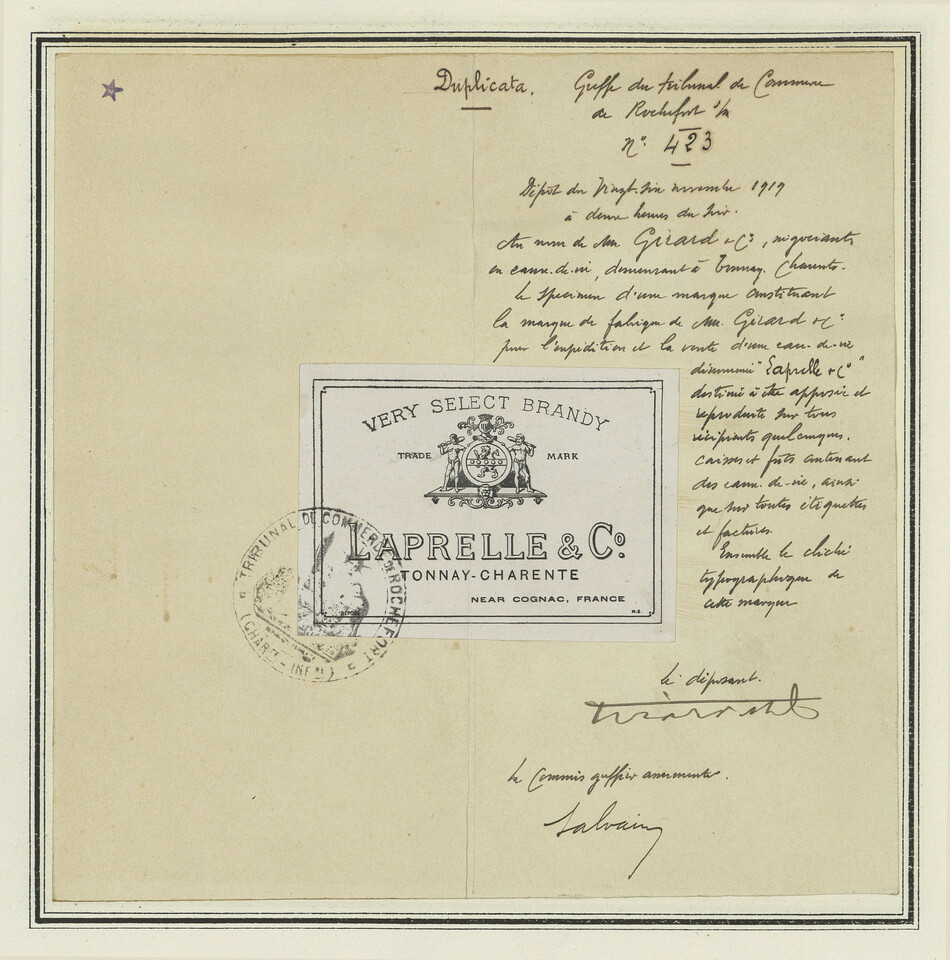 Duplicata.
Greffe du tribunal de Commerce
de Rochefort s/m
N° 423
Dépôt du Vingt-six novembre 1919
à deux heures du soir.
Au nom de MM. Girard & C°, négociants
en eaux-de-vie, demeurant à Tonnay-Charente.
le specimen d'une marque constituant
la marque de fabrique de MM. Girard & C°
pour l'expédition et la vente d'une eau-de-vie
dénommée "Laprelle & C°"
destinée à être apposée et
reproduite sur tous
récipients quelconques,
caisses et fûts contenant
des eaux-de-vie, ainsi
que sur toutes étiquettes
et factures.
Ensemble le cliché
typographique de
cette marque
VERY SELECT BRANDY
TRADE MARK
LAPRELLE & C°.
TONNAY-CHARENTE
NEAR COGNAC, FRANCE
DÉPOSÉ
TRIBUNAL DE COMMERCE DE ROCHEFORT
(CHARTE-INFRE)
le déposant.
le Commis greffier assermenté.
Salvain